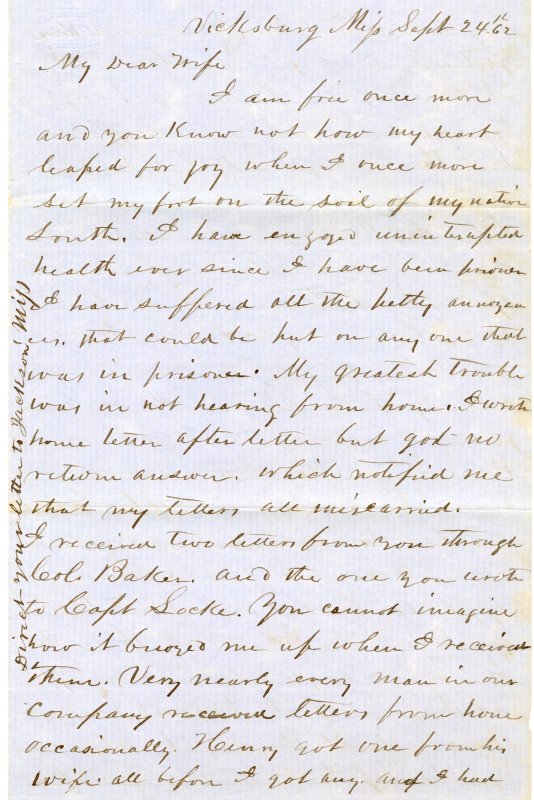 Vicksburg Miss Sept 24th 62
My Dear Wife
I am free once more
and you Know not how my heart
leaped for joy when I once more
set my foot on the soil of my native
South. I have enjoyed uninterupted
health ever since I have been prisoner
I have suffered all the petty annoyan
ces. that could be put on any one that
was in prisoner. My greatest trouble
was in not hearing from home. I wrote
home letter after letter but got no
return answer. which notified me
that my letters all miscarried.
I received two letters from you through
Col. Baker. and the one you wrote
to Capt Locke. You cannot imagine
how it buoyed me up when I received
them. Very nearly every man in our
company received letters from home
occasionally. Henry got one from his
wife all before I got any. and I had
Direct your letter to Jackson Miss